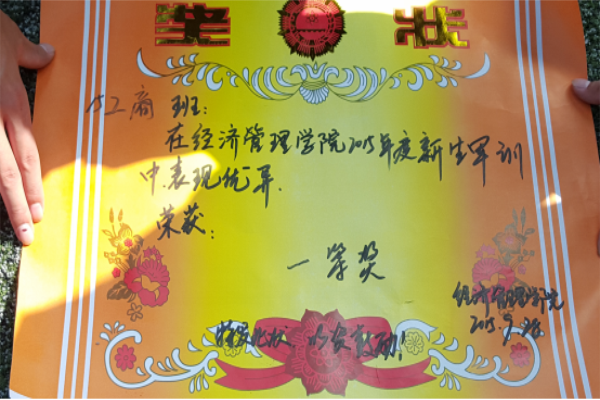 奖状
15工商班：
在经济管理学院2015年度新生军训
中表现优异.
荣获：
一等奖
特发此状，以资鼓励！
经济管理学院
2015.9.28